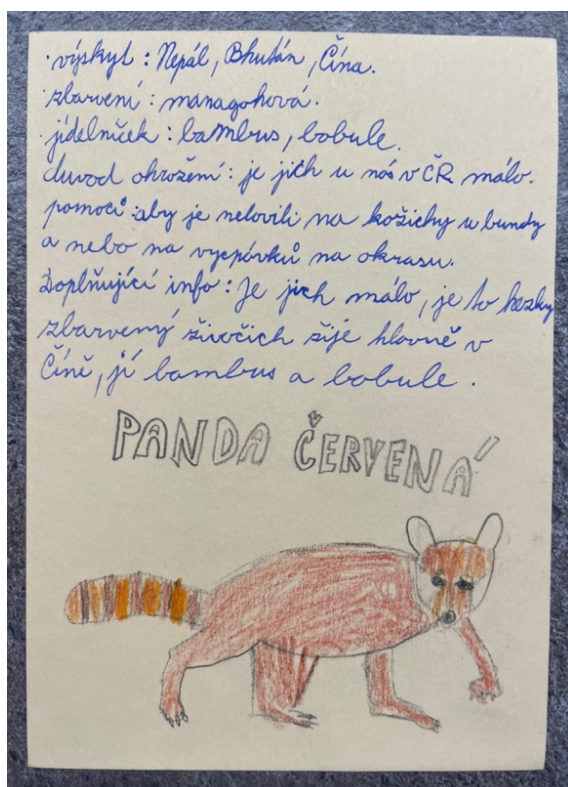 · výskyt : Nepál, Bhután, Čína.
· zbarvení : managohová.
· jídelníček : bambus, bobule.
duvod ohrožení : je jich u nás v ČR málo.
pomoci : aby je nelovili na kožichy u bundy
a nebo na vycpávků na okrasu.
Doplňující info : Je jich málo, je to hezky
zbarvený živočich žije hlavně v
Číně, jí bambus a bobule.
PANDA ČERVENÁ